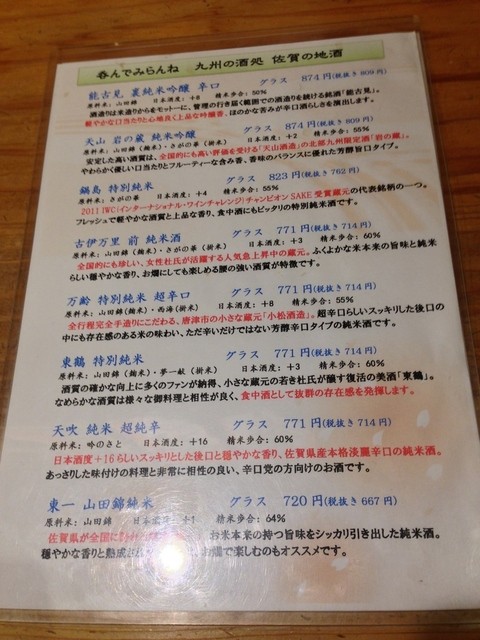 呑んでみらんね　九州の酒処　佐賀の地酒
能古見 裏純米吟醸 辛口　グラス　874円(税抜き 809円)
原料米：山田錦　日本酒度：+8　精米歩合：50%
酒造りは米造りからをモットーに、管理の行き届く範囲での酒造りを続ける銘酒「能古見」。
軽やかな口当たりと心地良く上品な吟醸香、ほのかな苦みが辛口酒らしさを演出します。
天山 岩の蔵 純米吟醸　グラス　874円(税抜き 809円)
原料米：山田錦（麹米）・さがの華（掛米）　日本酒度：+2　精米歩合：55%
安定した高い酒質は、全国的にも高い評価を受ける「天山酒造」の北部九州限定酒「岩の蔵」。
やわらかく優しい口当たりとフルーティーな含み香、香味のバランスに優れた芳醇旨口タイプ。
鍋島 特別純米　グラス　823円(税抜き 762円)
原料米：さがの華　日本酒度：+4　精米歩合：55%
2011 IWC(インターナショナル・ワインチャレンジ)チャンピオン SAKE 受賞蔵元の代表銘柄の一つ。
フレッシュで軽やかな酒質と上品な香り、食中酒にもピッタリの特別純米酒です。
古伊万里 前 純米酒　グラス　771円(税抜き 714円)
原料米：山田錦（麹米）・さがの華（掛米）　日本酒度：+3　精米歩合：60%
全国的にも珍しい、女性杜氏が活躍する人気急上昇中の蔵元。ふくよかな米本来の旨味と純米
らしい穏やかな香り。お燗にしても楽しめる腰の強い酒質が特徴です。
万齢 特別純米 超辛口　グラス　771円(税抜き 714円)
原料米：山田錦（麹米）・西海（掛米）　日本酒度：+8　精米歩合：55%
全行程完全手造りにこだわる、唐津市の小さな蔵元「小松酒造」。超辛口らしいスッキリした後口の
中にも存在感のある米の味わい、ただ辛いだけではない芳醇辛口タイプの純米酒です。
東鶴 特別純米　グラス　771円(税抜き 714円)
原料米：山田錦（麹米）・夢一献（掛米）　日本酒度：+3　精米歩合：60%
酒質の確かな向上に多くのファンが納得、小さな蔵元の若き杜氏が醸す復活の美酒「東鶴」。
なめらかな酒質は様々な御料理と相性が良く、食中酒として抜群の存在感を発揮します。
天吹 純米 超純辛　グラス　771円(税抜き 714円)
原料米：吟のさと　日本酒度：+16　精米歩合：60%
日本酒度+16らしいスッキリとした後口と穏やかな香り、佐賀県産本格淡麗辛口の純米酒。
あっさりした味付けの料理と非常に相性の良い、辛口党の方向けのお酒です。
東一 山田錦純米　グラス　720円(税抜き 667円)
原料米：山田錦　日本酒度：+1　精米歩合：64%
佐賀県が全国に お米本来の持つ旨味をシッカリ引き出した純米酒。
穏やかな香りと熟成され お燗で楽しむのもオススメです。